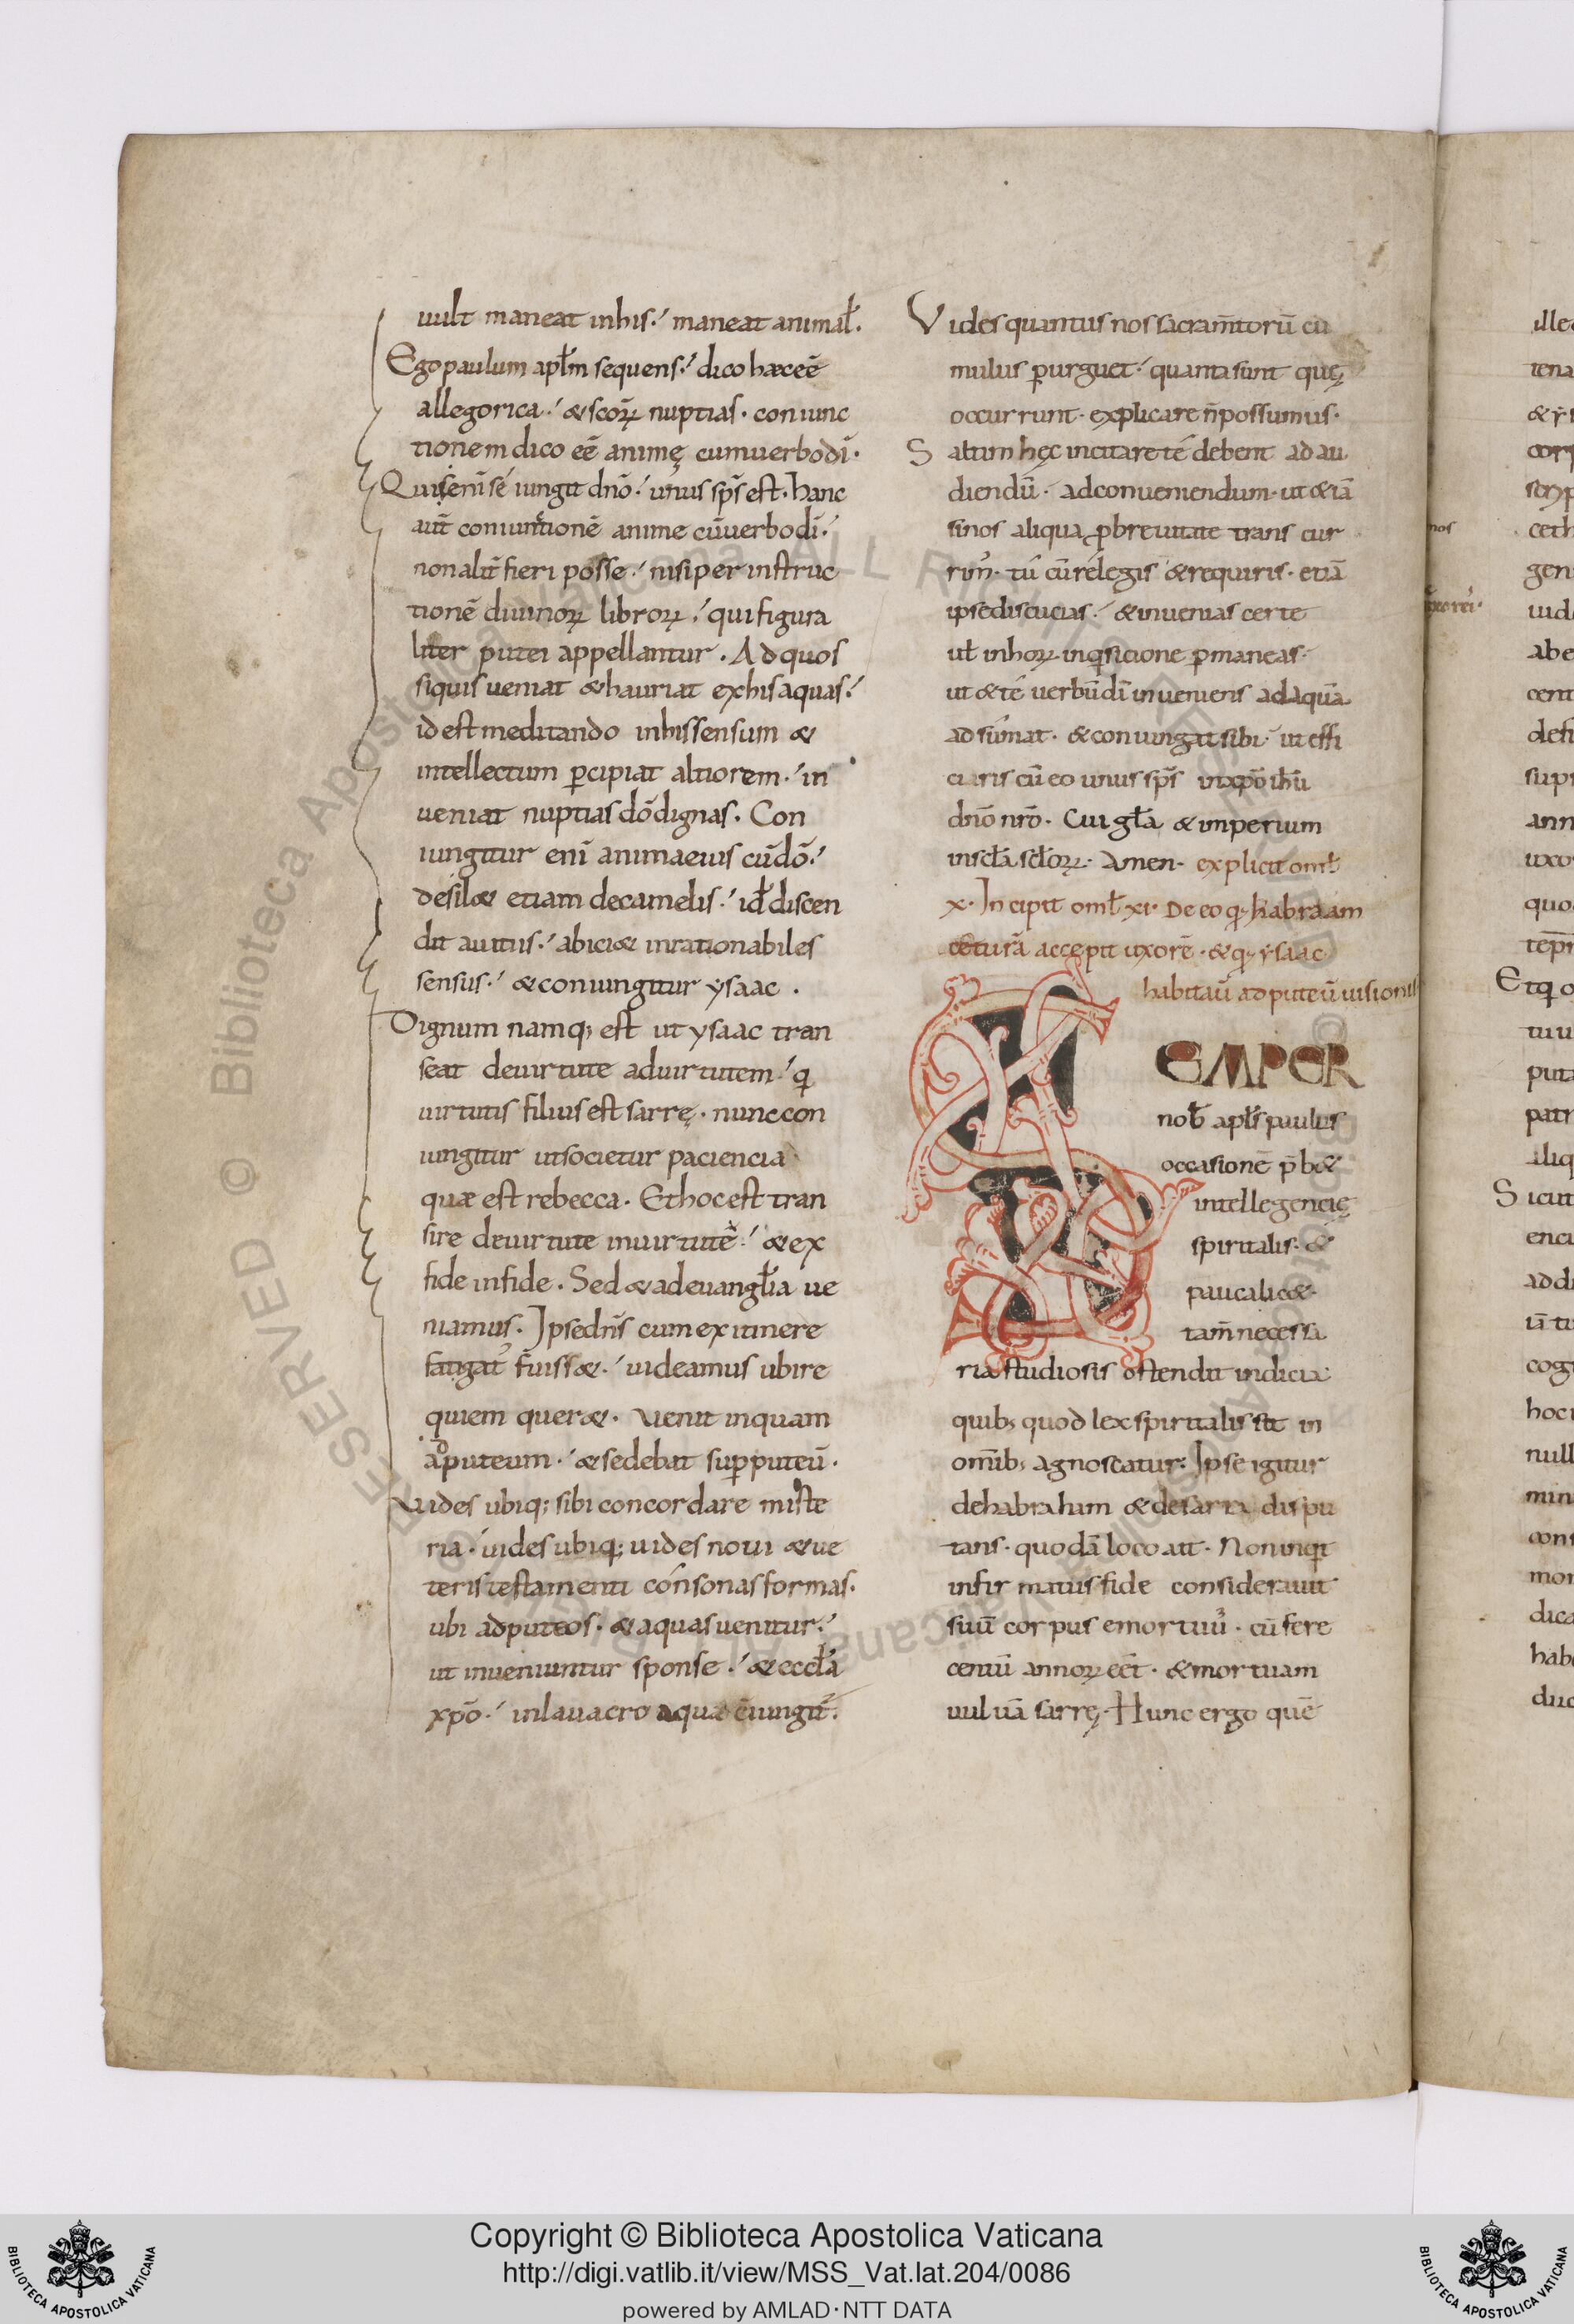 uult maneat inhis. maneat animał.
Ego paulum apłm sequens. dico hæc eē
allegorica. & scoꝝ nuptias. coniunc
tionem dico eē animę cumuerbo dī.
Qui se enī sé iungit dnō. unus sps̄ est. hanc
aut̄ coniunctionē anime cū uerbo dī.
non alit̄ fieri posse. nisi per instruc
tionē diuinoꝝ libroꝝ. qui figura
liter putei appellantur. Ad quos
siquis ueniat & hauriat exhis aquas.
id est meditando inhis sensum &
intellectum ꝑcipiat altiorem. in
ueniat nuptias dō dignas. Con
iungitur enī anima eius cū dō.
desil& etiam decamelis. id discen
dit auitus. abici& inrationabiles
sensus. & coniungitur ysaac.
Dignum namq; est ut ysaac tran
seat deuirtute aduirtutem. q
uirtutis filius est sarrę. nunc con
iungitur ut societur paciencia
quæ est rebecca. Et hoc est tran
sire deuirtute inuirtutē. & ex
fide infide. Sed & ad euangłia ue
niamus. Ipse dns̄ cum ex itinere
fatigat' fuiss&. uideamus ubi re
quiem quer&. Uenit inquam
ad puteum. & sedebat supꝑ puteū.
Vides ubiq; sibi concordare miste
ria. uides ubiq; uides noui & ue
teris testamenti consonas formas.
ubi ad puteos. & aquas uenitur.
ut inueniuntur sponse. & eccła
xpō. inlauacro aquæ ciungit'.
Vides quantus nos sacram̄torū cu
mulus ꝑurguet. quanta sunt quę
occurrunt. explicare n̄ possumus.
Saltim hęc incitare té debent ad au
diendū. ad conueniendum. ut & iā
si nos aliqua ꝓ breuitate trans cur
rim'. tú cū relegis & requiris. etiā
ipse discucias. & inuenias certe
ut inhoꝝ inqisicione ꝑmaneas.
ut & té uerbū dī inueniens ad aquā
adsumat. & coniungat sibi. ut effi
ciaris cū eo unus sps̄ inxpō ihū
dnō nrō. Cui gła & imperium
inscła scłoꝝ. Amen. explicit omł
x. Incipit omł xi. De eo q habraam
ceturā accepit uxorē. & q ysaac
habitau ad puteū uisionis
SEMPER
nob apłs paulus
occasionē p̄b&
intellegencię
spiritalis. &
pauca lic&.
tam̄ necessa
ria studiosis ostendit indicia
quib; quod lex spiritalis sit in
omīb; agnoscatur. Ipse igitur
dehabraham & desarra dispu
tans. quodā loco ait. Non inqit
infirmatus fide considerauit
suū corpus emortuū. cū fere
centū annoꝝ eēt. & mortuam
uuluā sarrę. Hunc ergo quē
Copyright © Biblioteca Apostolica Vaticana
http://digi.vatlib.it/view/MSS_Vat.lat.204/0086
powered by AMLAD·NTT DATA